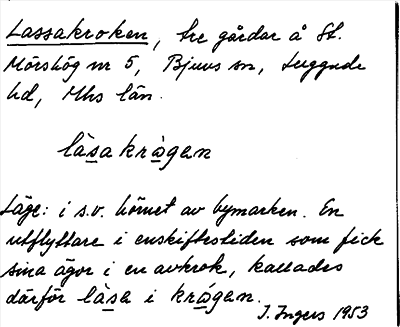 Lassakroken, tre gårdar å St.
Mörshög nr 5, Bjuvs sn, Luggude
hd, Mhs län.
làsakrågen
Läge: i s.v. hörnet av bymarken. En
utflyttare i enskiftestiden som fick
sina ägor i en avkrok, kallades
därför làsa i krågen.
I. Ingers 1953